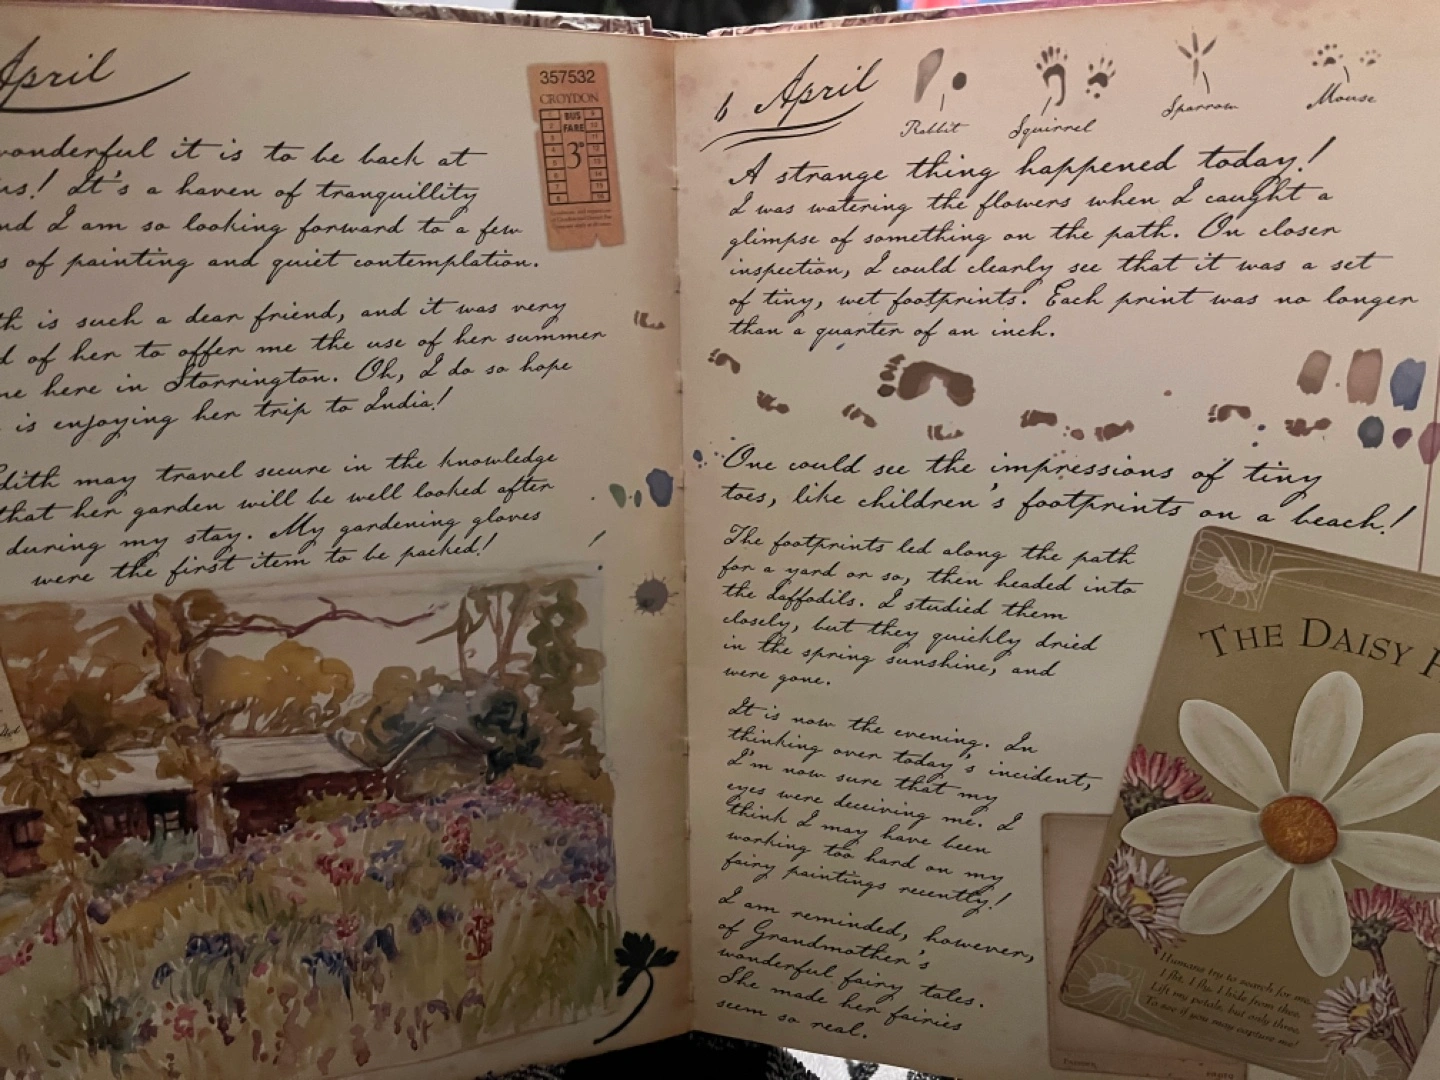 April
wonderful it is to be back at
It's a haven of tranquillity
and I am so looking forward to a few
of painting and quiet contemplation.
is such a dear friend, and it was very
of her to offer me the use of her summer
here in Storrington. Oh, I do so hope
is enjoying her trip to India!
Edith may travel secure in the knowledge
that her garden will be well looked after
during my stay. My gardening gloves
were the first item to be packed!
357532
CROYDON
BUS
FARE
3d
6 April
Rabbit
Squirrel
Sparrow
Mouse
A strange thing happened today!
I was watering the flowers when I caught a
glimpse of something on the path. On closer
inspection, I could clearly see that it was a set
of tiny, wet footprints. Each print was no longer
than a quarter of an inch.
One could see the impressions of tiny
toes, like children's footprints on a beach!
The footprints led along the path
for a yard or so, then headed into
the daffodils. I studied them
closely, but they quickly dried
in the spring sunshine, and
were gone.
It is now the evening. In
thinking over today's incident,
I'm now sure that my
eyes were deceiving me. I
think I may have been
working too hard on my
fairy paintings recently!
I am reminded, however,
of Grandmother's
wonderful fairy tales.
She made her fairies
seem so real.
THE DAISY
Humans try to search for me,
I flit, I fly, I hide from thee.
Lift my petals, but only three,
To see if you may capture me!